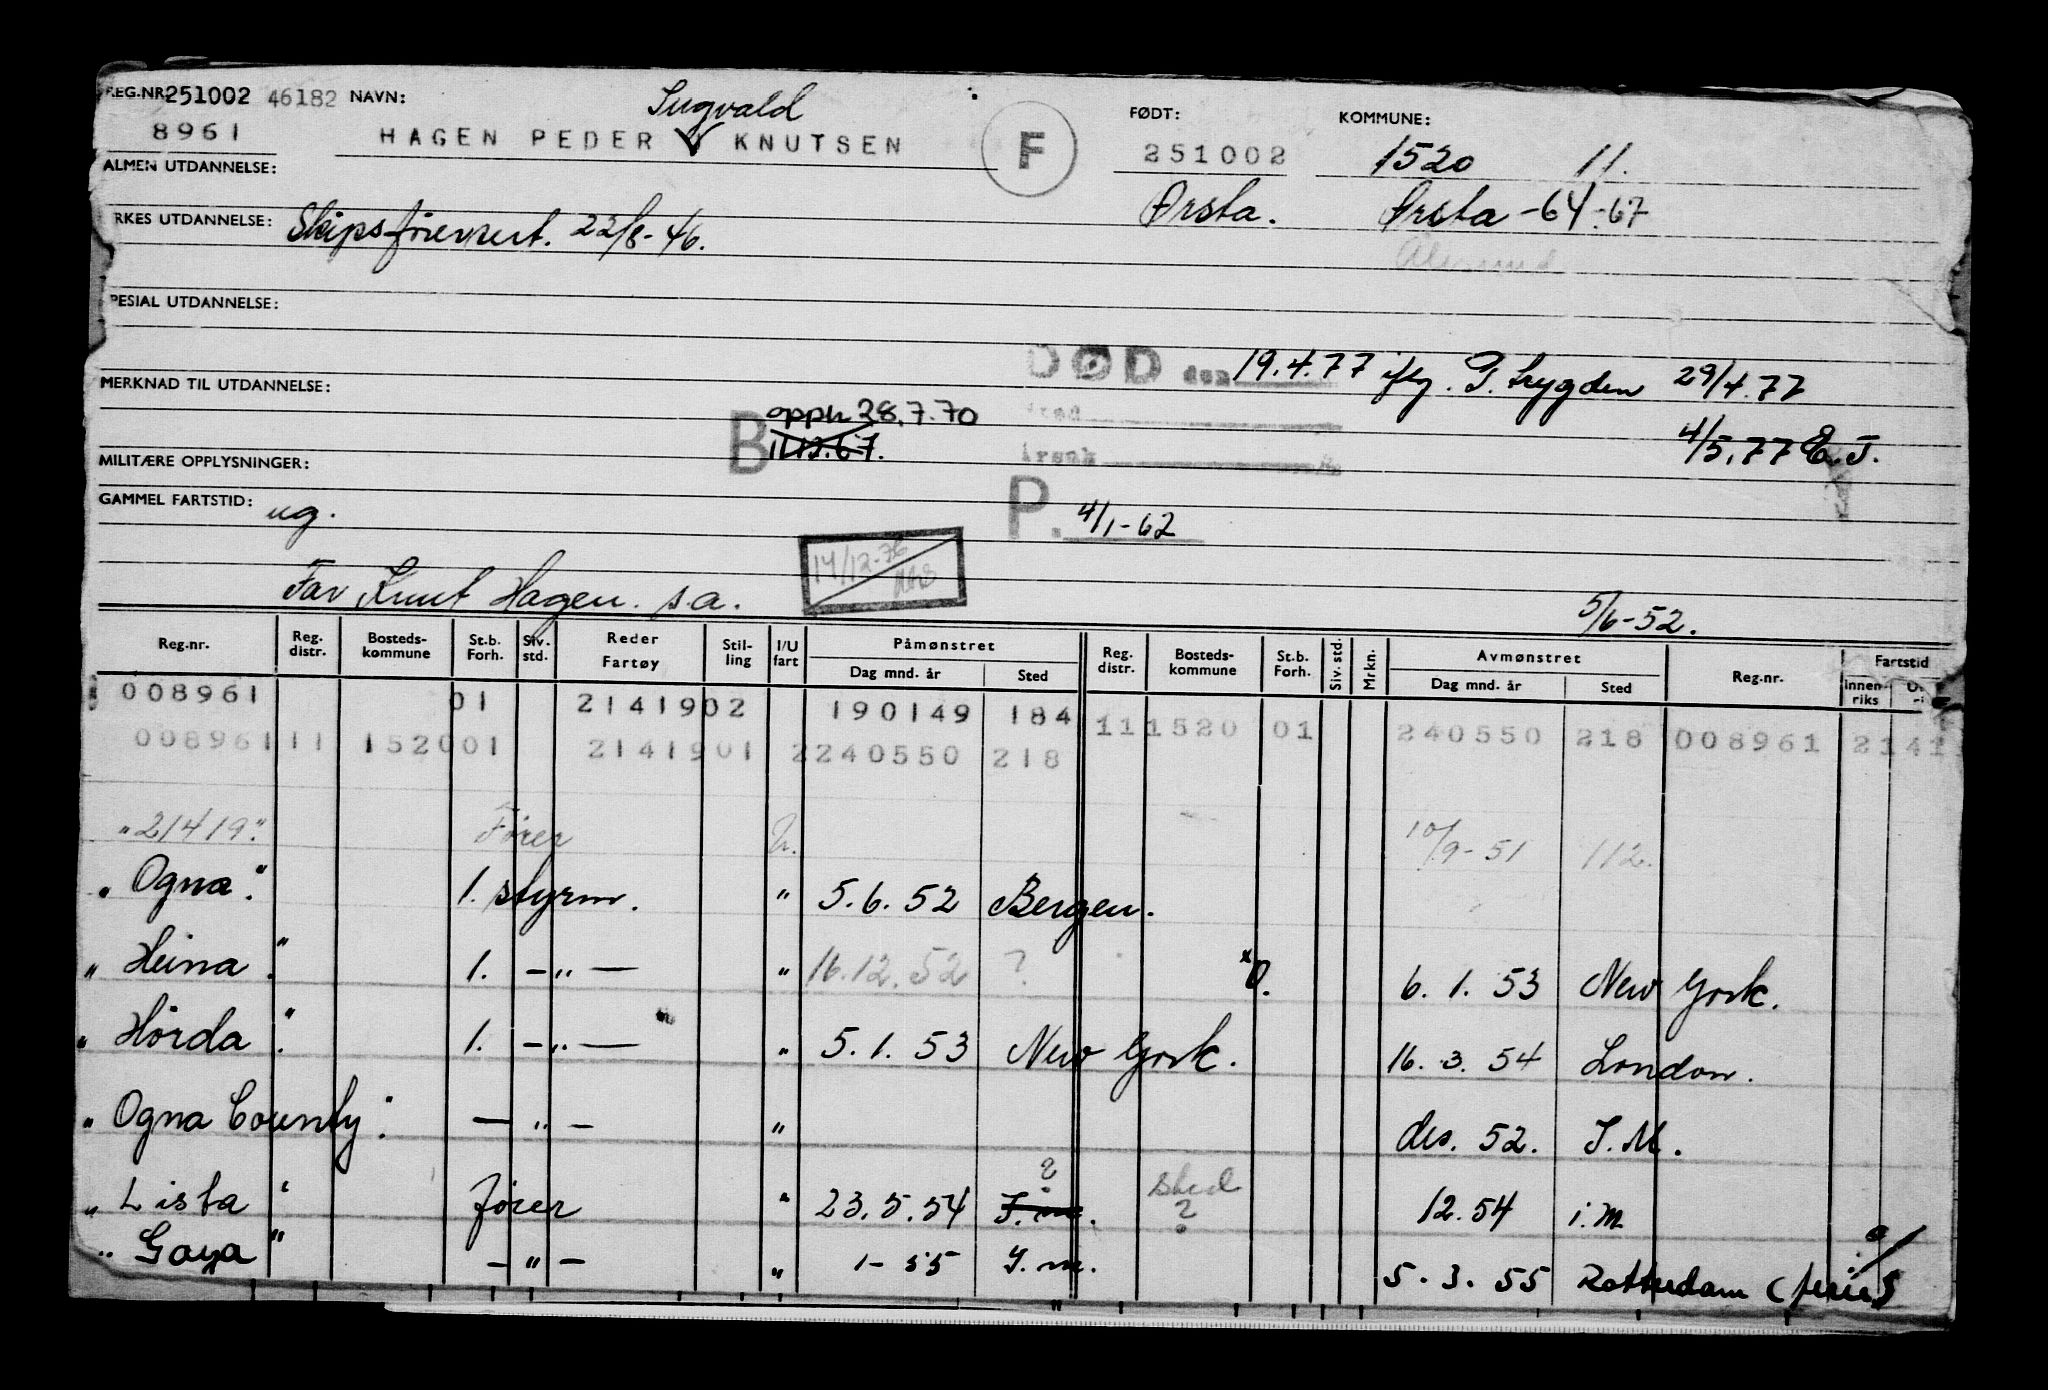 REG.NR. 251002 46182 NAVN: Ingvald FØDT: KOMMUNE:
8961 HAGEN PEDER V KNUTSEN F 251002 1520 11.
ALMEN UTDANNELSE: Ørsta. Ørsta -64-67
YRKES UTDANNELSE: Skipsförersert. 22/8-46. Ålesund
SPESIAL UTDANNELSE:
DØD den 19.4.77 iflg. P. trygden 29/4.77
MERKNAD TIL UTDANNELSE:
B opph 28.7.70 sted
11.12.67. årsak 4/5.77 E.J.
MILITÆRE OPPLYSNINGER:
GAMMEL FARTSTID: ug. P. 4/1-62
14/12-76
Far Knut Hagen. s.a. 5/6-52.
Reg.nr. Reg. distr. Bosteds-kommune St.b. Forh. Siv. std. Reder Fartøy Stil-ling I/U fart Påmønstret Dag mnd. år Sted Reg. distr. Bosteds-kommune St.b. Forh. Siv. std. Mrkn. Avmønstret Dag mnd. år Sted Reg.nr. Fartstid Innen-riks
008961 01 2141902 190149 184 11 1520 01 240550 218 008961 2141
008961 11 1520 01 2141901 2 240550 218
"21419" Fører U. 10/9-51 112.
"Ogna" 1. styrm. " 5.6.52 Bergen.
"Heina" 1. -"- " 16.12.52 ? x O. 6.1.53 New York.
"Hörda" 1. -"- " 5.1.53 New York. 16.3.54 London.
"Ogna County" -"- " des. 52. I.M.
"Lista" fører " 23.5.54 I.m. ? sted ? 12.54 i.m
"Goya" -"- " 1-55 I.m. 5.3.55 Rotterdam (ferie)